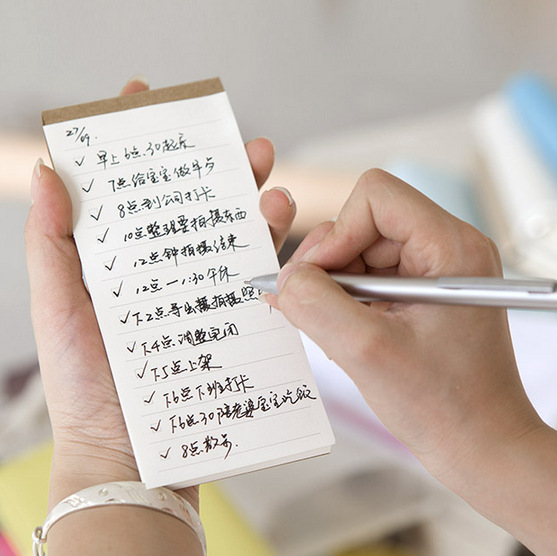 27/09.
✓ 早上6点30起床
✓ 7点给宝宝做早点
✓ 8点到公司打卡
✓ 10点整理要拍摄东西
✓ 12点钟拍摄结束
✓ 12点一1:30午休
✓ 下2点导出摄拍摄照
✓ 下4点调整
✓ 下5点上架
✓ 下6点下班打卡
✓ 下6点30陪老婆宝宝吃饭
✓ 8点散步.